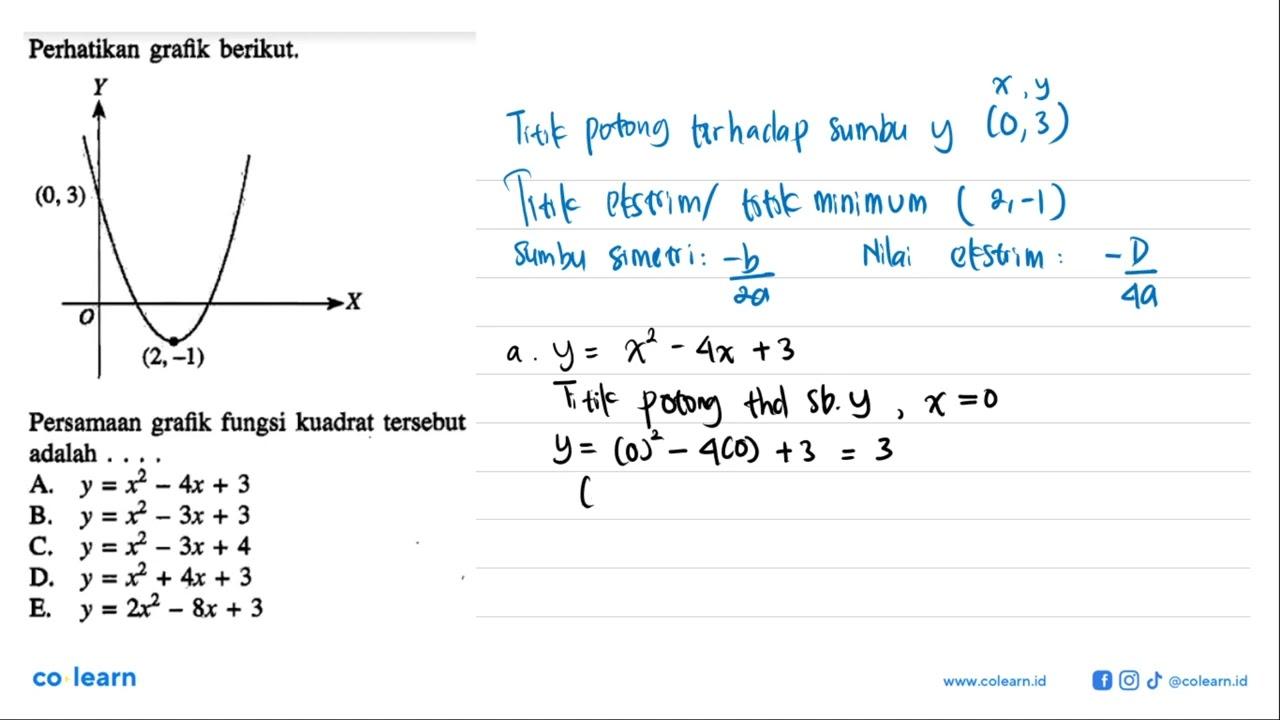 Perhatikan grafik berikut.
Y
(0, 3)
X
O
(2, –1)
Persamaan grafik fungsi kuadrat tersebut
adalah . . . .
A. y = x² – 4x + 3
B. y = x² – 3x + 3
C. y = x² – 3x + 4
D. y = x² + 4x + 3
E. y = 2x² – 8x + 3
x, y
Titik potong terhadap sumbu y (0, 3)
Titik ekstrim/ titik minimum (2, -1)
Sumbu simetri: -b/2a Nilai ekstrim: -D/4a
a. y = x² - 4x + 3
Titik potong thd sb. y, x = 0
y = (0)² - 4(0) + 3 = 3
(
co learn
www.colearn.id
@colearn.id